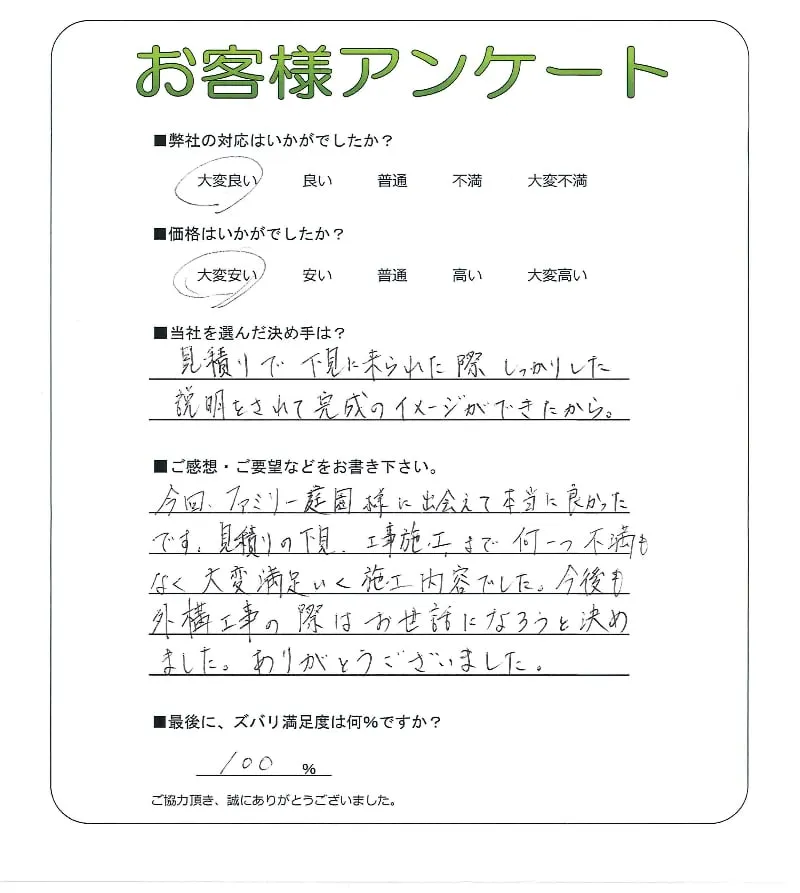 お客様アンケート
■弊社の対応はいかがでしたか？
大変良い 良い 普通 不満 大変不満
■価格はいかがでしたか？
大変安い 安い 普通 高い 大変高い
■当社を選んだ決め手は？
見積りで下見に来られた際しっかりした
説明をされて完成のイメージができたから。
■ご感想・ご要望などをお書き下さい。
今回、ファミリー庭園様に出会えて本当に良かった
です。見積りの下見、工事施工まで何一つ不満も
なく大変満足いく施工内容でした。今後も
外構工事の際はお世話になろうと決め
ました。ありがとうございました。
■最後に、ズバリ満足度は何%ですか？
100 %
ご協力頂き、誠にありがとうございました。